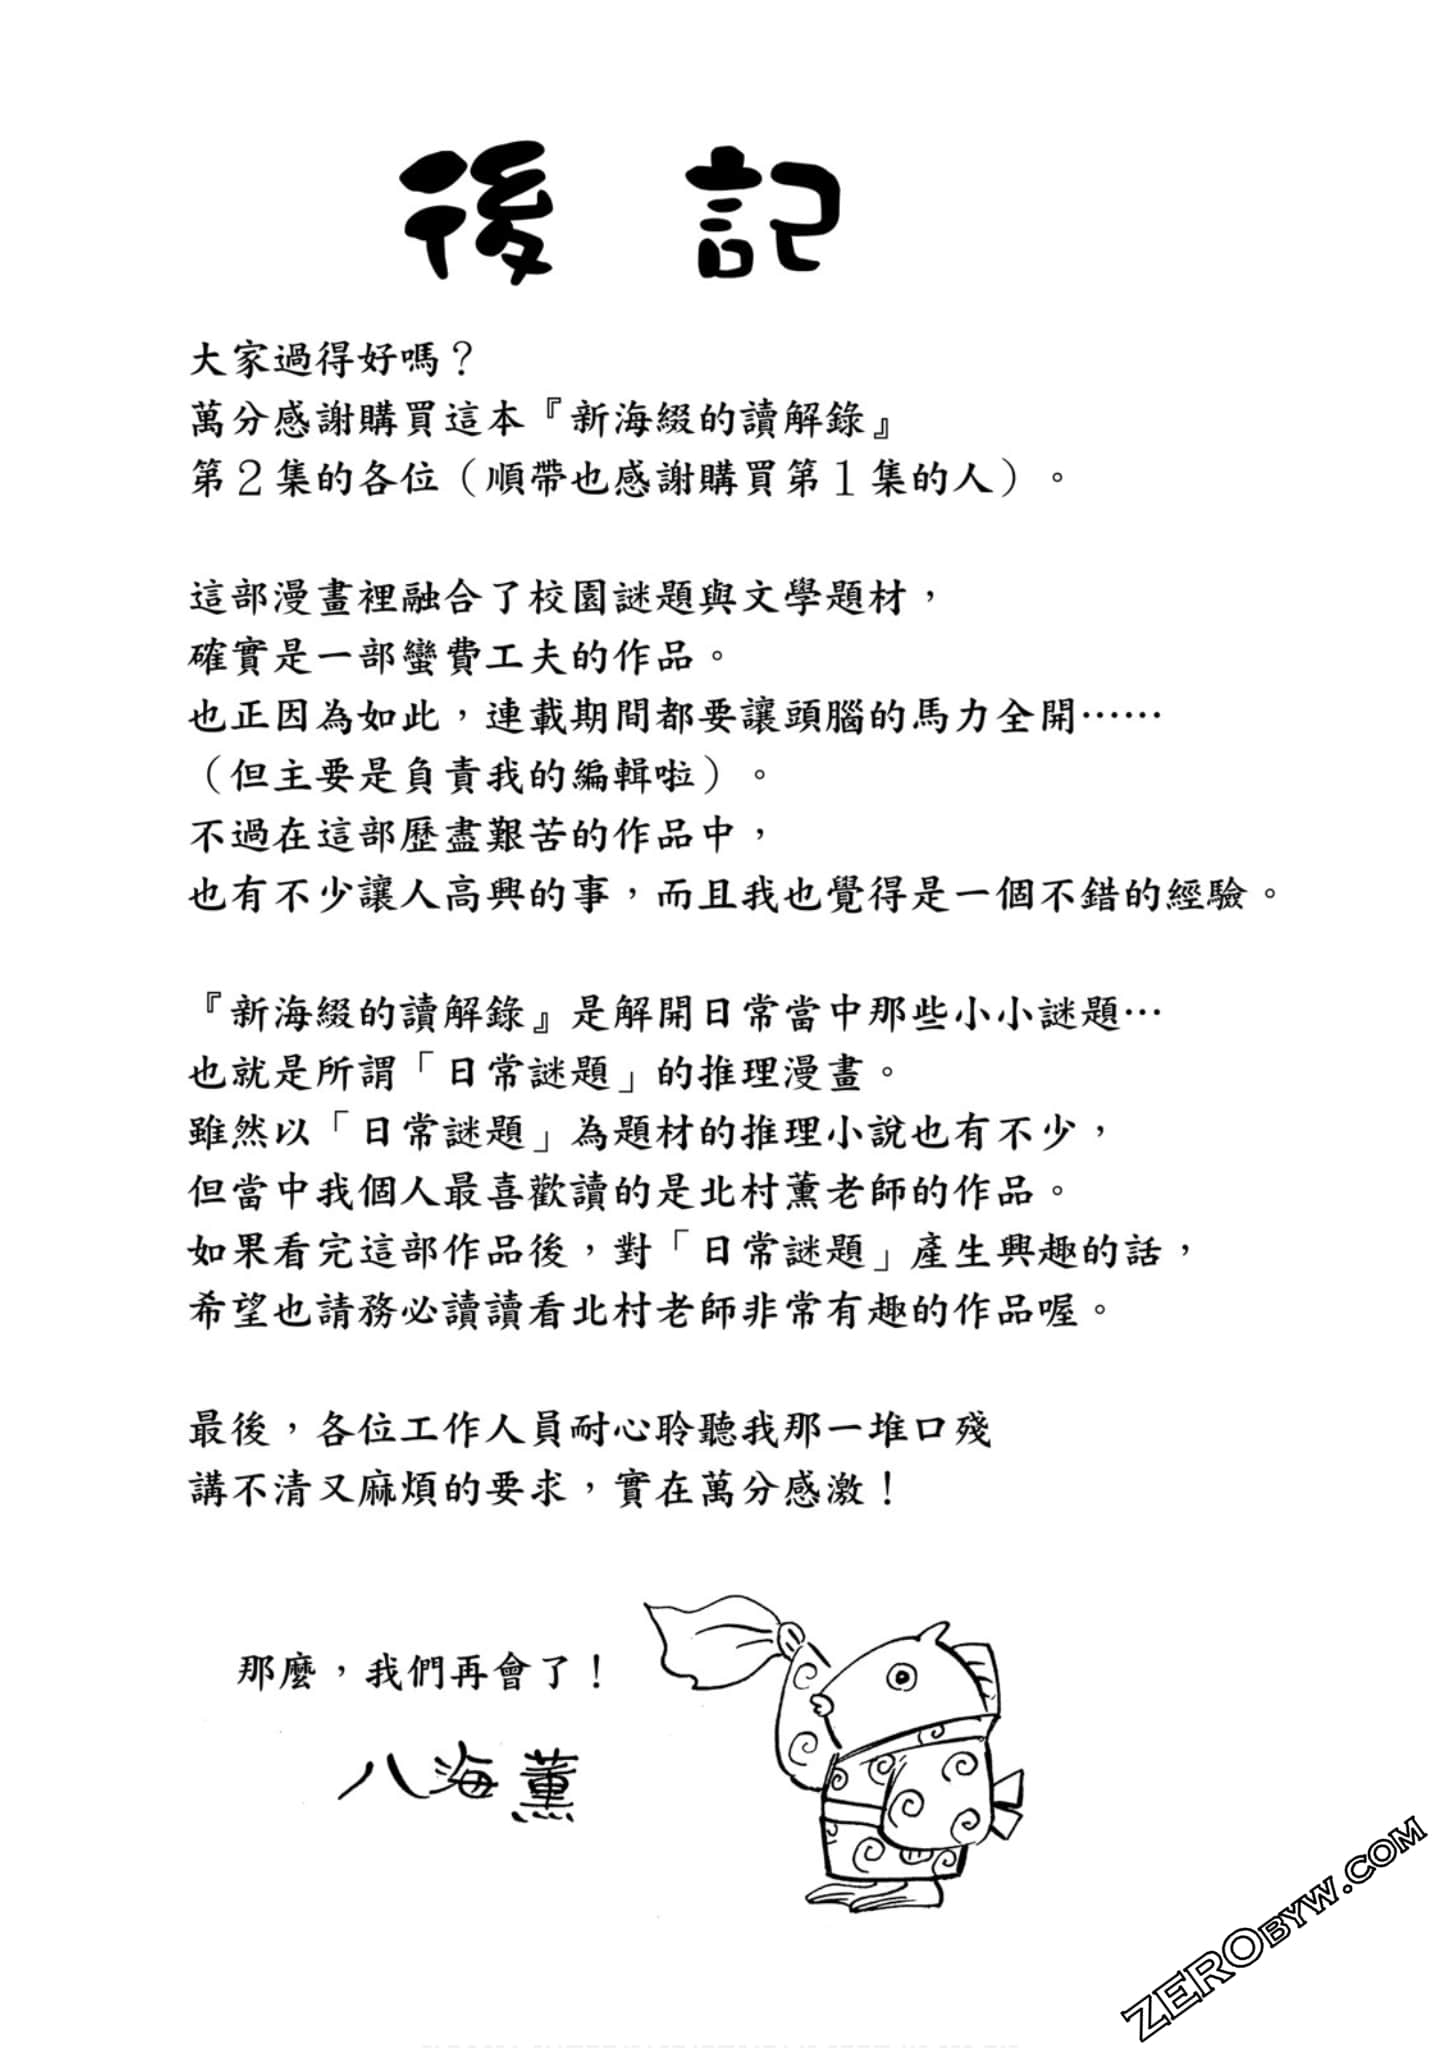 後記
大家過得好嗎？
萬分感謝購買這本『新海綴的讀解錄』
第２集的各位（順帶也感謝購買第１集的人）。
這部漫畫裡融合了校園謎題與文學題材，
確實是一部蠻費工夫的作品。
也正因為如此，連載期間都要讓頭腦的馬力全開⋯⋯
（但主要是負責我的編輯啦）。
不過在這部歷盡艱苦的作品中，
也有不少讓人高興的事，而且我也覺得是一個不錯的經驗。
『新海綴的讀解錄』是解開日常當中那些小小謎題⋯
也就是所謂「日常謎題」的推理漫畫。
雖然以「日常謎題」為題材的推理小說也有不少，
但當中我個人最喜歡讀的是北村薰老師的作品。
如果看完這部作品後，對「日常謎題」產生興趣的話，
希望也請務必讀讀看北村老師非常有趣的作品喔。
最後，各位工作人員耐心聆聽我那一堆口殘
講不清又麻煩的要求，實在萬分感激！
那麼，我們再會了！
八海薫
ZEROBYW.COM